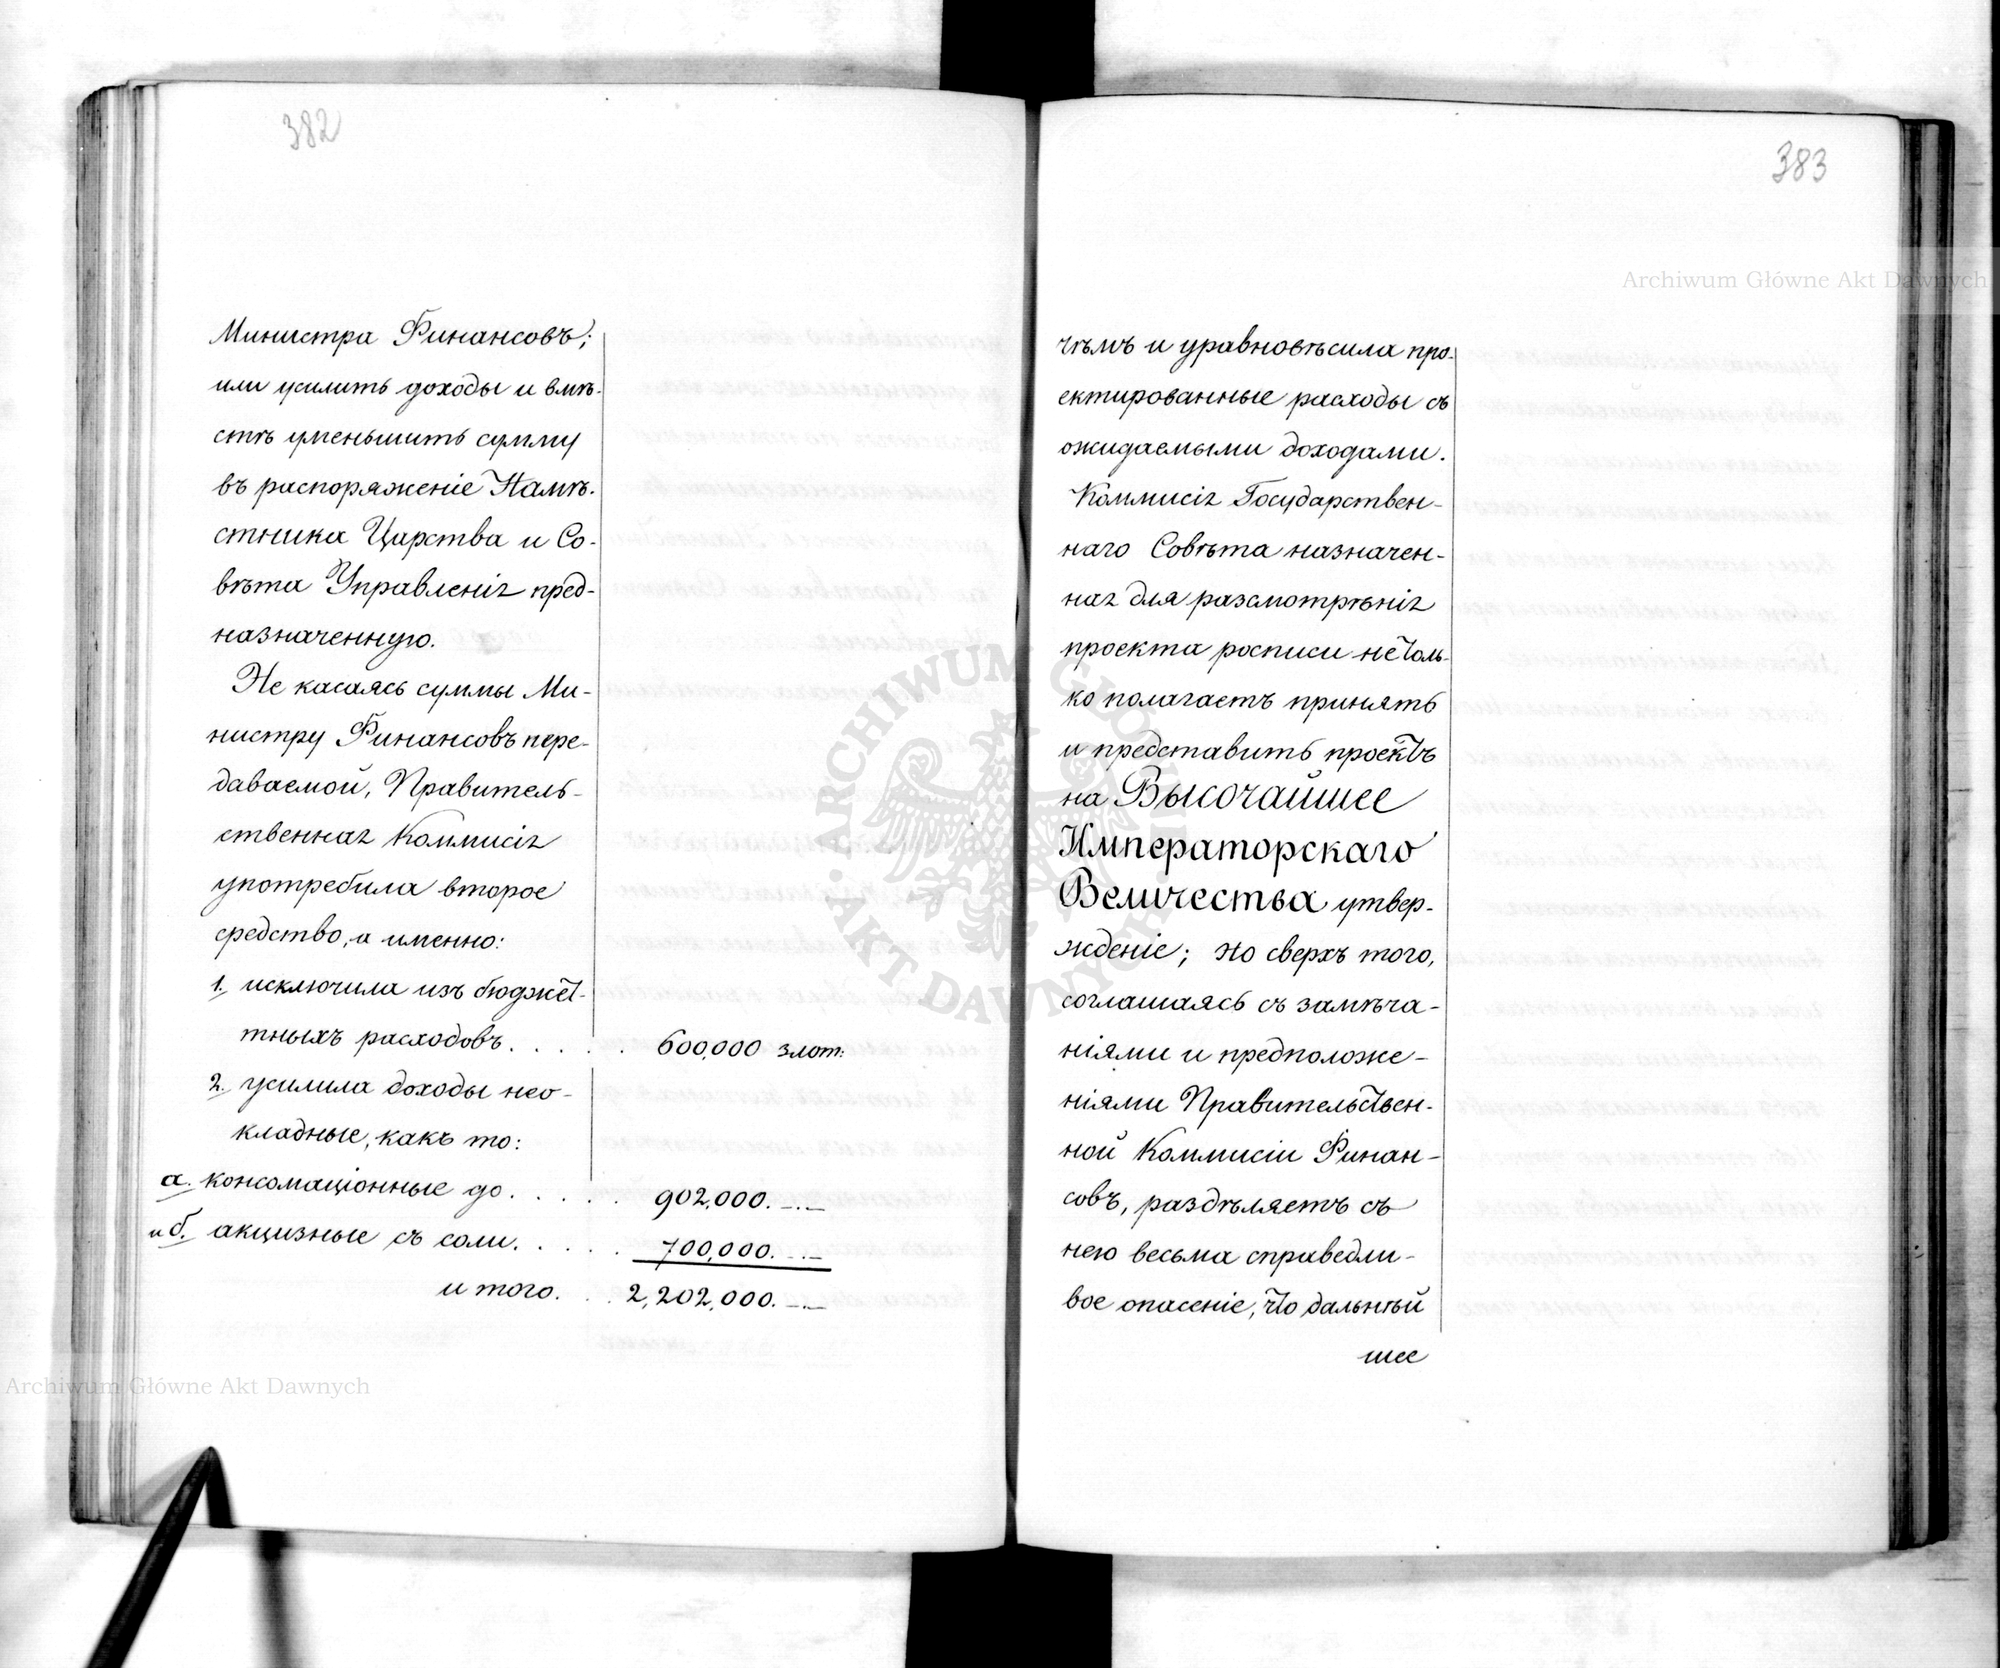 382
Министра Финансовъ;
или усилить доходы и вмѣ-
стѣ уменьшить сумму
въ распоряженіе Намѣ-
стника Царства и Со-
вѣта Управленія пред-
назначенную.
Не касаясь суммы Ми-
нистру Финансовъ пере-
даваемой, Правитель-
ственная Коммисія
употребила второе
средство, а именно:
1. исключила изъ бюджет-
тныхъ расходовъ. . . . . 600,000 злот:
2. усилила доходы нео-
кладные, какъ то:
а. консомаціонные до. . . . . 902,000. –.–
и б. акцизные съ соли. . . . . 700,000. –.–
и того. . . 2,202,000. –.–
383
чѣмъ и уравновѣсила про-
ектированные расходы съ
ожидаемыми доходами.
Коммисія Государствен-
наго Совѣта назначен-
ная для разсмотрѣнія
проекта росписи нетоль-
ко полагаетъ принять
и представить проектъ
на Высочайшее
Императорскаго
Величества утвер-
жденіе; но сверхъ того,
соглашаясь съ замѣча-
ніями и предположе-
ніями Правительствен-
ной Коммисіи Финан-
совъ, раздѣляетъ съ
нею весьма справедли-
вое опасеніе, что дальнѣй
шее
Archiwum Główne Akt Dawnych
Archiwum Główne Akt Dawnych
ARCHIWUM GŁÓWNE AKT DAWNYCH